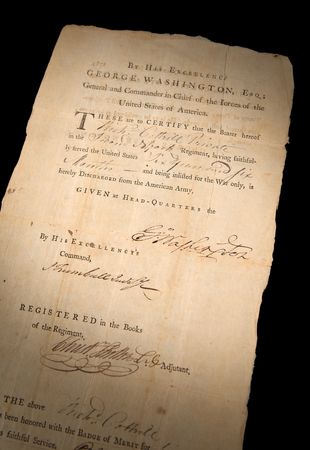 By His Excellency
GEORGE WASHINGTON, Esq;
General and Commander in Chief of the Forces of the
United States of America.
THESE are to CERTIFY that the Bearer hereof
Private
in the Regiment, having faithful-
ly served the United States six
Months and being inlisted for the War only, is
hereby Discharged from the American Army.
GIVEN at Head-Quarters the
G Washington
By His Excellency's
Command,
J Trumbull
REGISTERED in the Books
of the Regiment,
Adjutant,
THE above
been honored with the Badge of Merit for
faithful Service.